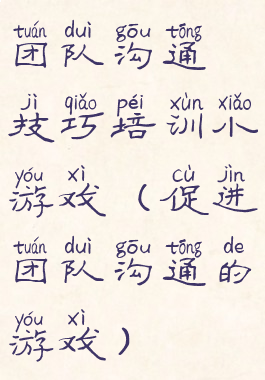 tuán duì gōu tōng
团队沟通
jì qiǎo péi xùn xiǎo
技巧培训小
yóu xì cù jìn
游戏（促进
tuán duì gōu tōng de
团队沟通的
yóu xì
游戏）